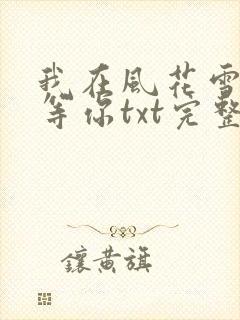 我在風花雪
等你txt完整
鑲黃旗